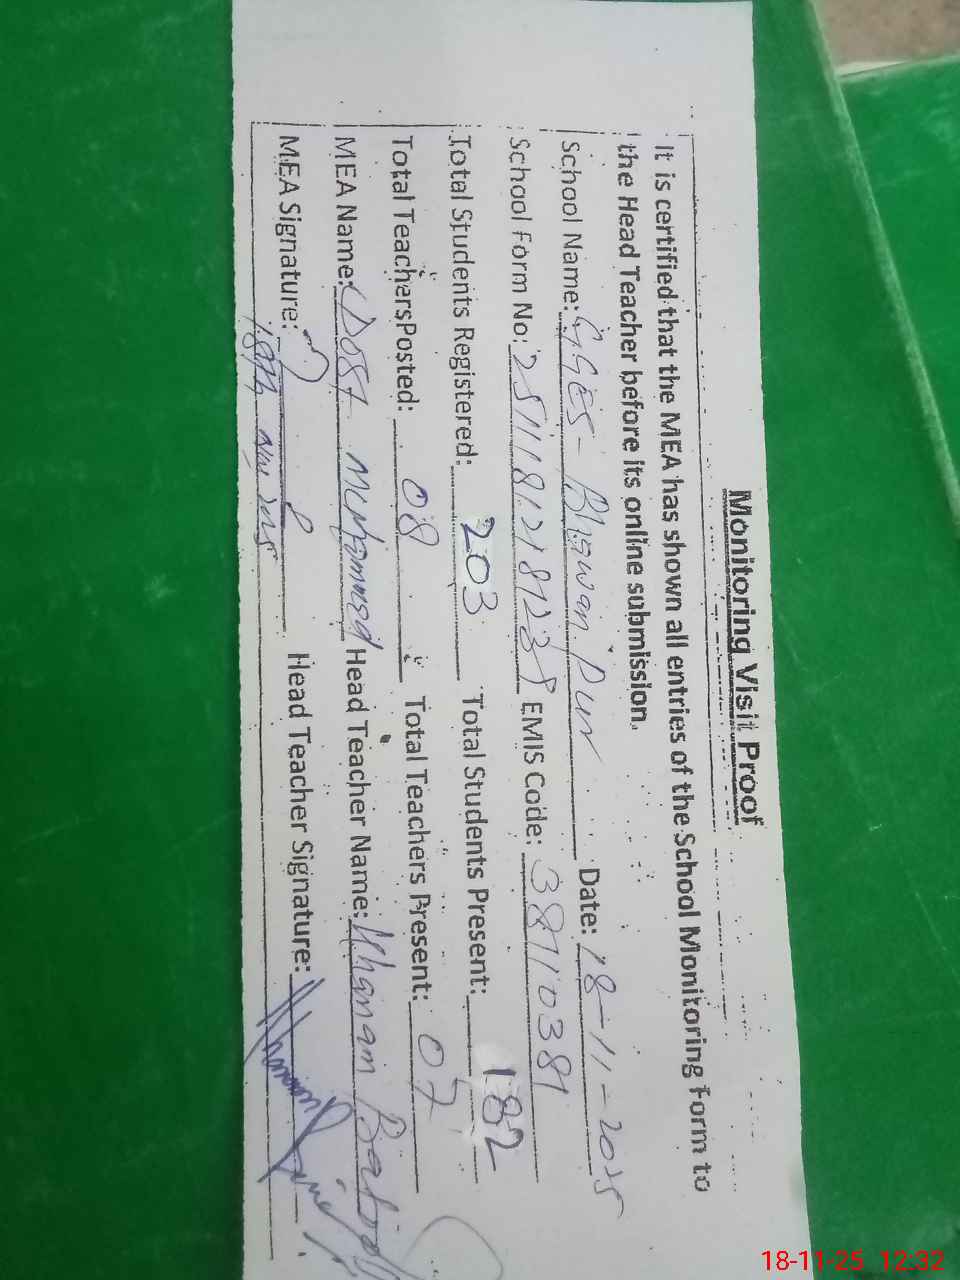 Monitoring Visit Proof
It is certified that the MEA has shown all entries of the School Monitoring Form to
the Head Teacher before its online submission.
School Name: GGES- Bhawan Pur Date: 18-11-2025
School Form No: EMIS Code: 38110381
Total Students Registered: 203 Total Students Present: 182
Total Teachers Posted: 08 Total Teachers Present: 07
MEA Name: Dost Muhammad Head Teacher Name:
MEA Signature: Head Teacher Signature:
18th Nov 2025
18-11-25 12:32